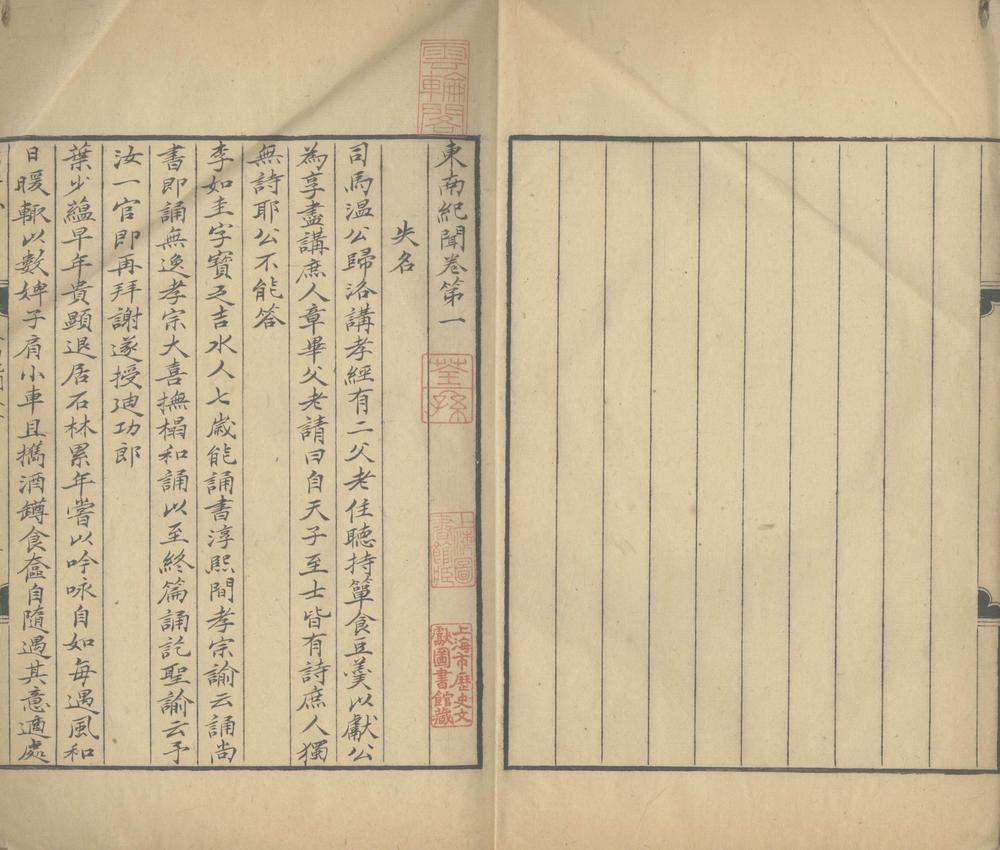 東南紀聞卷第一
失名
司馬溫公歸洛講孝經有二父老住聽持簞食豆羹以獻公
為享盡講庶人章畢父老請曰自天子至士皆有詩庶人獨
無詩耶公不能答
李如圭字寶之吉水人七歲能誦書淳熙間孝宗諭云誦尚
書即誦無逸孝宗大喜撫榻和誦以至終篇誦訖聖諭云予
汝一官即再拜謝遂授迪功郎
葉少蘊早年貴顯退居石林累年嘗以吟咏自如每遇風和
日暖輒以數婢子肩小車且攜酒罇食奩自隨遇其意適處
雲輪閣
荃孫
上海市歷史文
獻圖書館藏